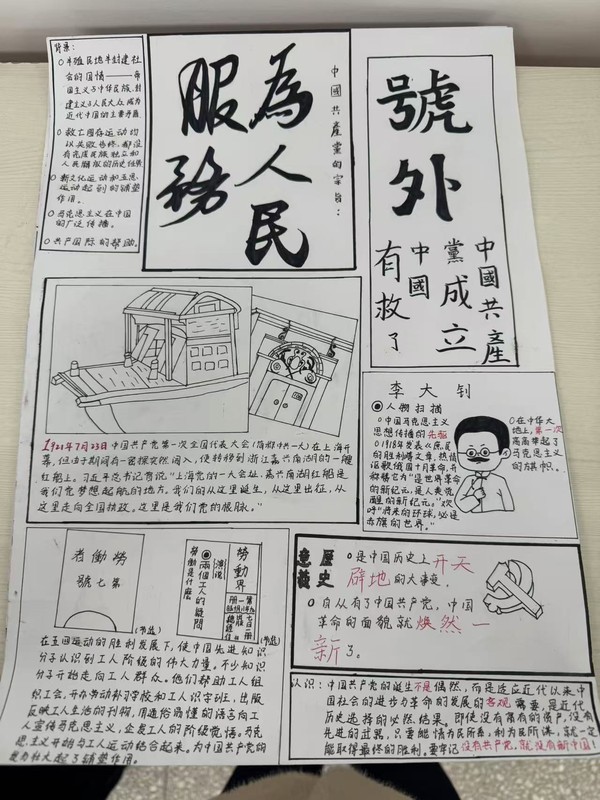 背景：
半殖民地半封建社
会的国情——帝
国主义与中华民族、封
建主义与人民大众成为
近代中国的主要矛盾
救亡图存运动均
以失败告终，都没
有完成民族独立和
人民解放的历史任务
新文化运动和五四
运动起到的铺垫
作用。
马克思主义在中国
的广泛传播。
共产国际的帮助。
中國共產黨的宗旨：
為人民
服務
號外
中國共產
黨成立
中國
有救了
1921年7月23日中国共产党第一次全国代表大会(简称中共一大)在上海开
幕，但由于期间有一密探突然闯入，便转移到浙江嘉兴南湖的一艘
红船上。习近平总书记曾说“上海党的一大会址、嘉兴南湖红船是
我们党梦想起航的地方。我们的从这里诞生，从这里出征，从
这里走向全国执政。这里是我们党的根脉。”
李大钊
人物扫描
中国马克思主义
思想传播的先驱
1918年发表《庶民
的胜利》等文章，热情
讴歌俄国十月革命，开
称它为“是世界革命
的新纪元，是人类觉
醒的新纪元。”欢
呼“将来的环球，必是
赤旗的世界。”
在中华大
地上，第一次
高高举起了
马克思主义
的旗帜。
勞働者
號七第
(书签)
勞働界
第一册
演说
兩個工人的疑問
勞働是什麼
(书签)
在五四运动的胜利发展下，使中国先进知识
分子认识到工人阶级的伟大力量。不少知识
分子开始走向工人群众。他们帮助工人组
织工会，开办劳动补习学校和工人识字班，出版
反映工人生活的刊物，用通俗易懂的语言向工
人宣传马克思主义，企发工人的阶级觉悟。马克
思主义开始与工人运动结合起来。为中国共产党的
发力壮大起了铺垫作用。
歷史意義
是中国历史上开天
辟地的大事变。
自从有了中国共产党，中国
革命的面貌就焕然一
新了。
认识：中国共产党的诞生不是偶然，而是适应近代以来中
国社会的进步与革命的发展的客观需要，是近代
历史选择的必然结果。即使没有富有的资产，没有
先进的武器，只要能情为民所系，利为民所谋，就一定
能取得最终的胜利。要牢记没有共产党，就没有新中国！